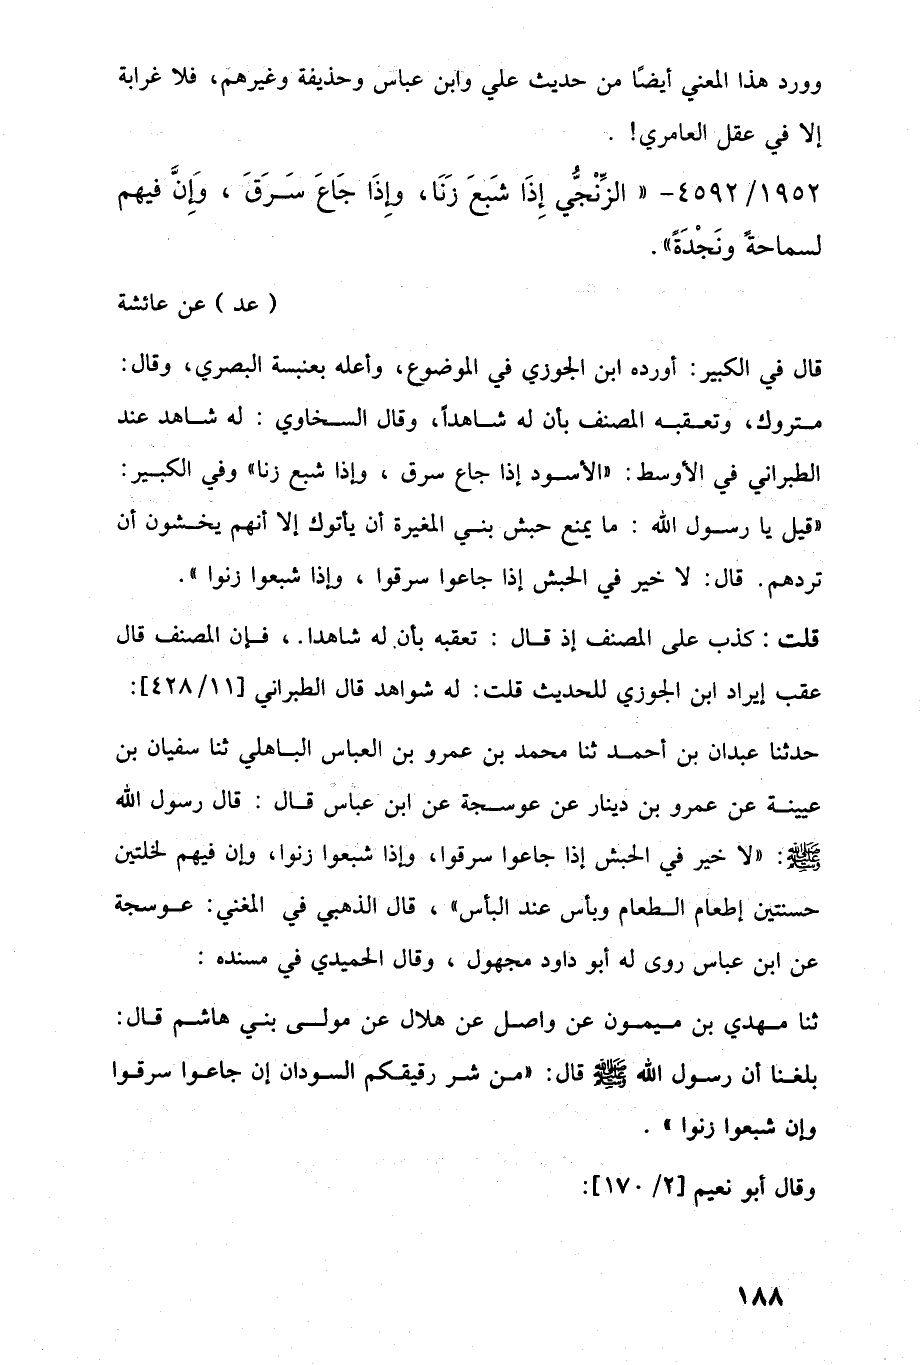 وورد هذا المعني أيضًا من حديث علي وابن عباس وحذيفة وغيرهم، فلا غرابة
إلا في عقل العامري! .
٤٥٩٢/١٩٥٢- « الزِّنْجُّي إِذَا شَبَعَ زَنَا، وإِذَا جَاعَ سَـرَقَ ، وَإِنَّ فيهم
لسماحةً ونَجْدَةً».
( عد ) عن عائشة
قال في الكبير: أورده ابن الجوزي في الموضوع، وأعله بعنبسة البصري، وقال:
متروك، وتعقبه المصنف بأن له شاهداً، وقال السخاوي : له شاهد عند
الطبراني في الأوسط: «الأسود إذا جاع سرق ، وإذا شبع زنا» وفي الكبير:
«قيل يا رسول الله : ما يمنع حبش بني المغيرة أن يأتوك إلا أنهم يخشون أن
تردهم. قال: لا خير في الحبش إذا جاعوا سرقوا ، وإذا شبعوا زنوا ».
قلت : كذب على المصنف إذ قال : تعقبه بأن له شاهدا. ، فإن المصنف قال
عقب إيراد ابن الجوزي للحديث قلت: له شواهد قال الطبراني [٤٢٨/١١]:
حدثنا عبدان بن أحمد ثنا محمد بن عمرو بن العباس الباهلي ثنا سفيان بن
عيينة عن عمرو بن دينار عن عوسجة عن ابن عباس قال : قال رسول الله
ﷺ: «لا خير في الحبش إذا جاعوا سرقوا، وإذا شبعوا زنوا، وإن فيهم لخلتين
حسنتين إطعام الطعام وبأس عند البأس» ، قال الذهبي في المغني: عوسجة
عن ابن عباس روى له أبو داود مجهول ، وقال الحميدي في مسنده :
ثنا مهدي بن ميمون عن واصل عن هلال عن مولى بني هاشم قال:
بلغنا أن رسول الله ﷺ قال: «من شر رقيقكم السودان إن جاعوا سرقوا
وإن شبعوا زنوا » .
وقال أبو نعيم [٢/ ١٧٠]:
١٨٨